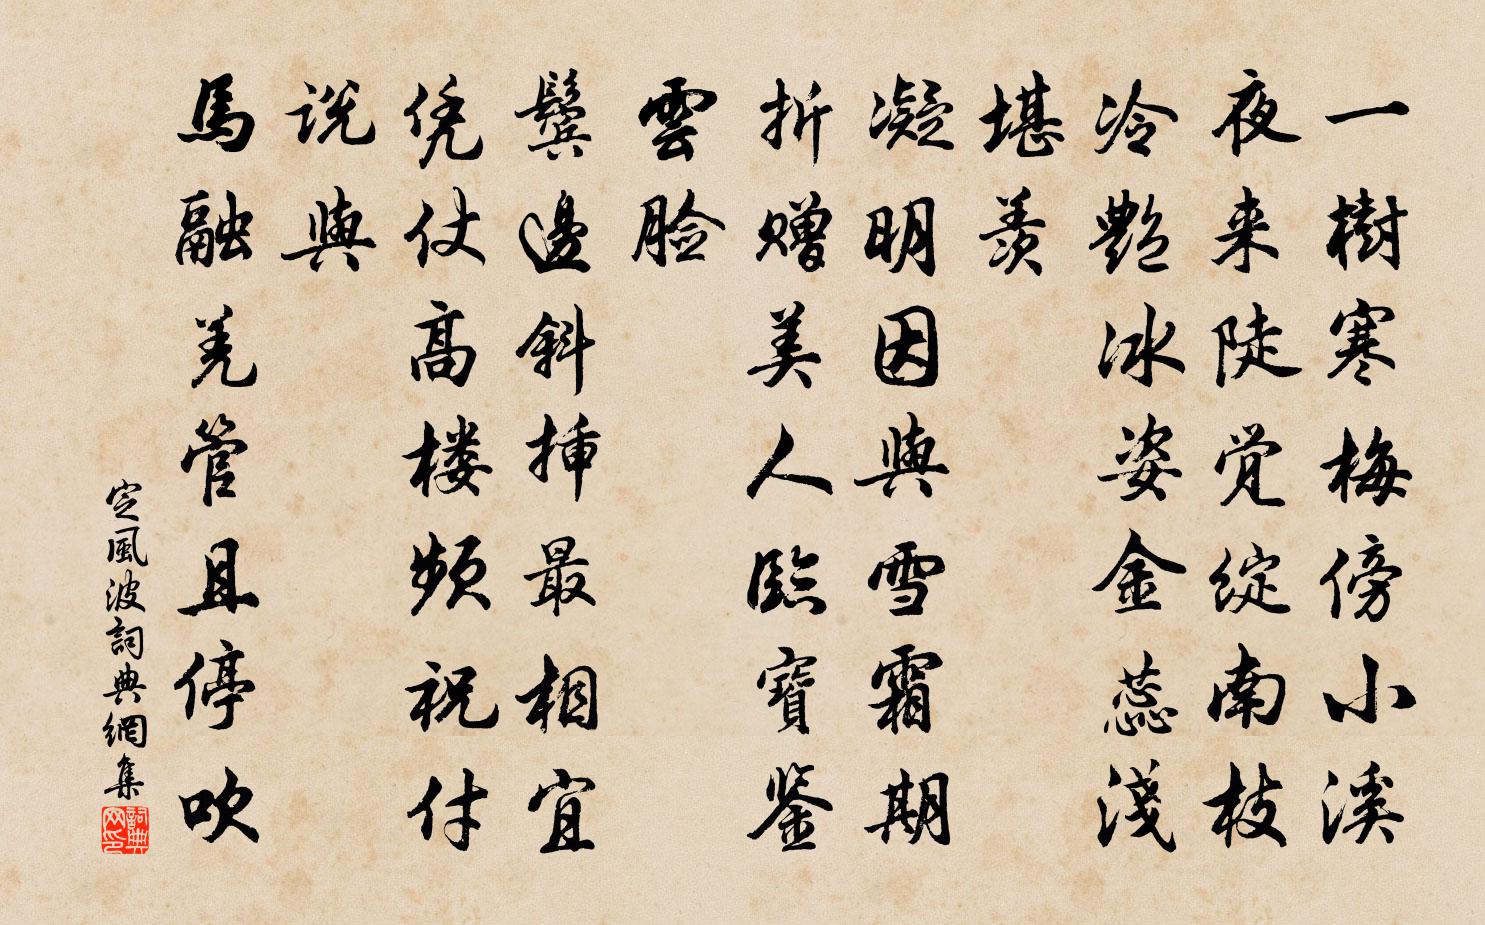 一樹寒梅傍小溪
夜来陡覚綻南枝
冷艷冰姿金蕊淺
堪羨
凝明因與雪霜期
折贈美人臨寶鉴
雲脸
鬓邊斜挿最相宜
凭仗高楼频祝付
说與
馬融羌管且停吹
定風波詞典網集
詞典
网印